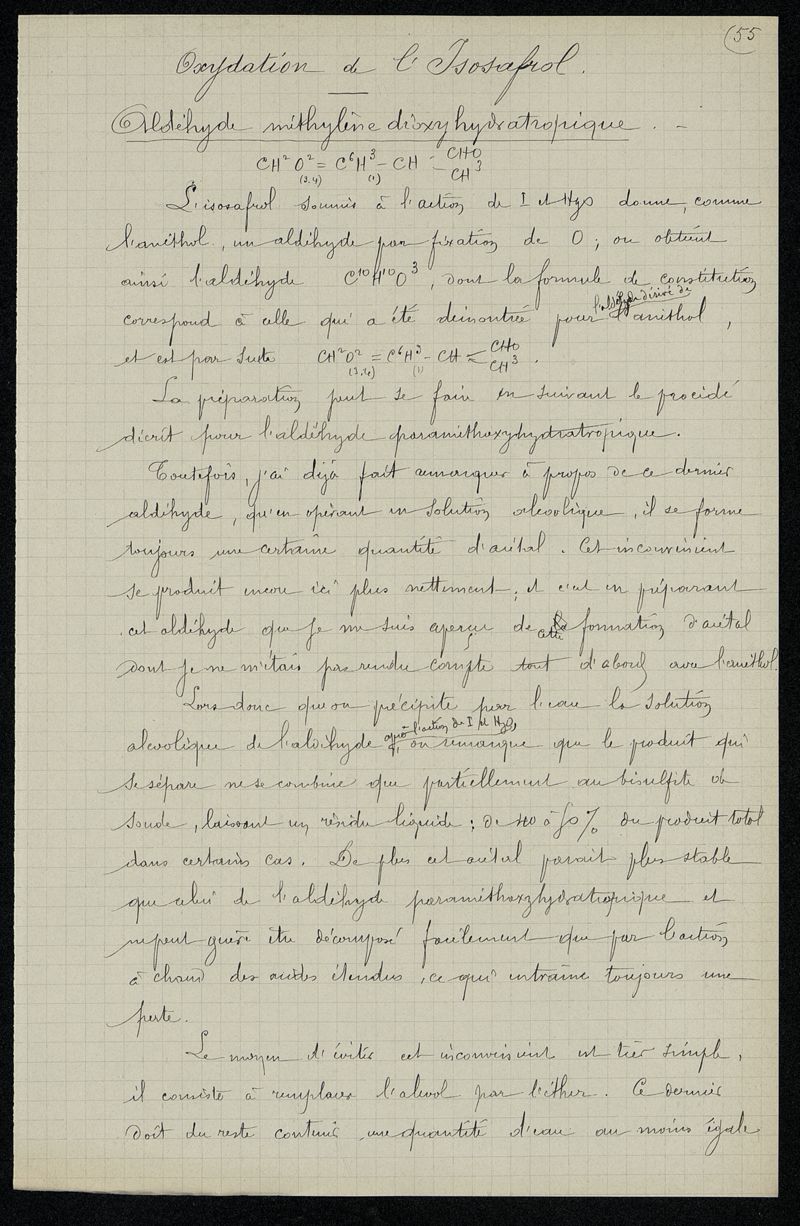 (55
Oxydation de l'Isosafrol.
Aldéhyde méthylène dioxyhydratropique. -
CH² O² = C⁶H³ - CH = CHO
CH³
(3.4) (1)
L'isosafrol soumis à l'action de I et HgO donne, comme
l'anéthol, un aldéhyde par fixation de O ; on obtient
ainsi l'aldéhyde C¹⁰H¹⁰O³, dont la formule de constitution
l'aldéhyde dérivé de
correspond à celle qui a été démontrée pour l'anéthol,
et est par suite CH²O² = C⁶H³ - CH < CHO
CH³.
(3.4) (1)
La préparation peut se faire en suivant le procédé
décrit pour l'aldéhyde paraméthoxyhydratropique.
Toutefois, j'ai déjà fait remarquer à propos de ce dernier
aldéhyde, qu'en opérant en solution alcoolique, il se forme
toujours une certaine quantité d'acétal. Cet inconvénient
se produit encore ici plus nettement ; et c'est en préparant
cet aldéhyde que je me suis aperçu de cette formation d'acétal
dont je ne m'étais pas rendu compte tout d'abord avec l'anéthol.
Lors donc que on précipite par l'eau la solution
après l'action de I et HgO,
alcoolique de l'aldéhyde on remarque que le produit qui
se sépare ne se combine que partiellement au bisulfite de
soude, laissant un résidu liquide ; de 40 à 50% du produit total
dans certains cas. De plus cet acétal parait plus stable
que celui de l'aldéhyde paraméthoxyhydratropique et
ne peut guère être décomposé facilement que par l'action
à chaud des acides étendus, ce qui entraîne toujours une
perte.
Le moyen d'éviter cet inconvénient est très simple,
il consiste à remplacer l'alcool par l'éther. Ce dernier
doit du reste contenir une quantité d'eau au moins égale